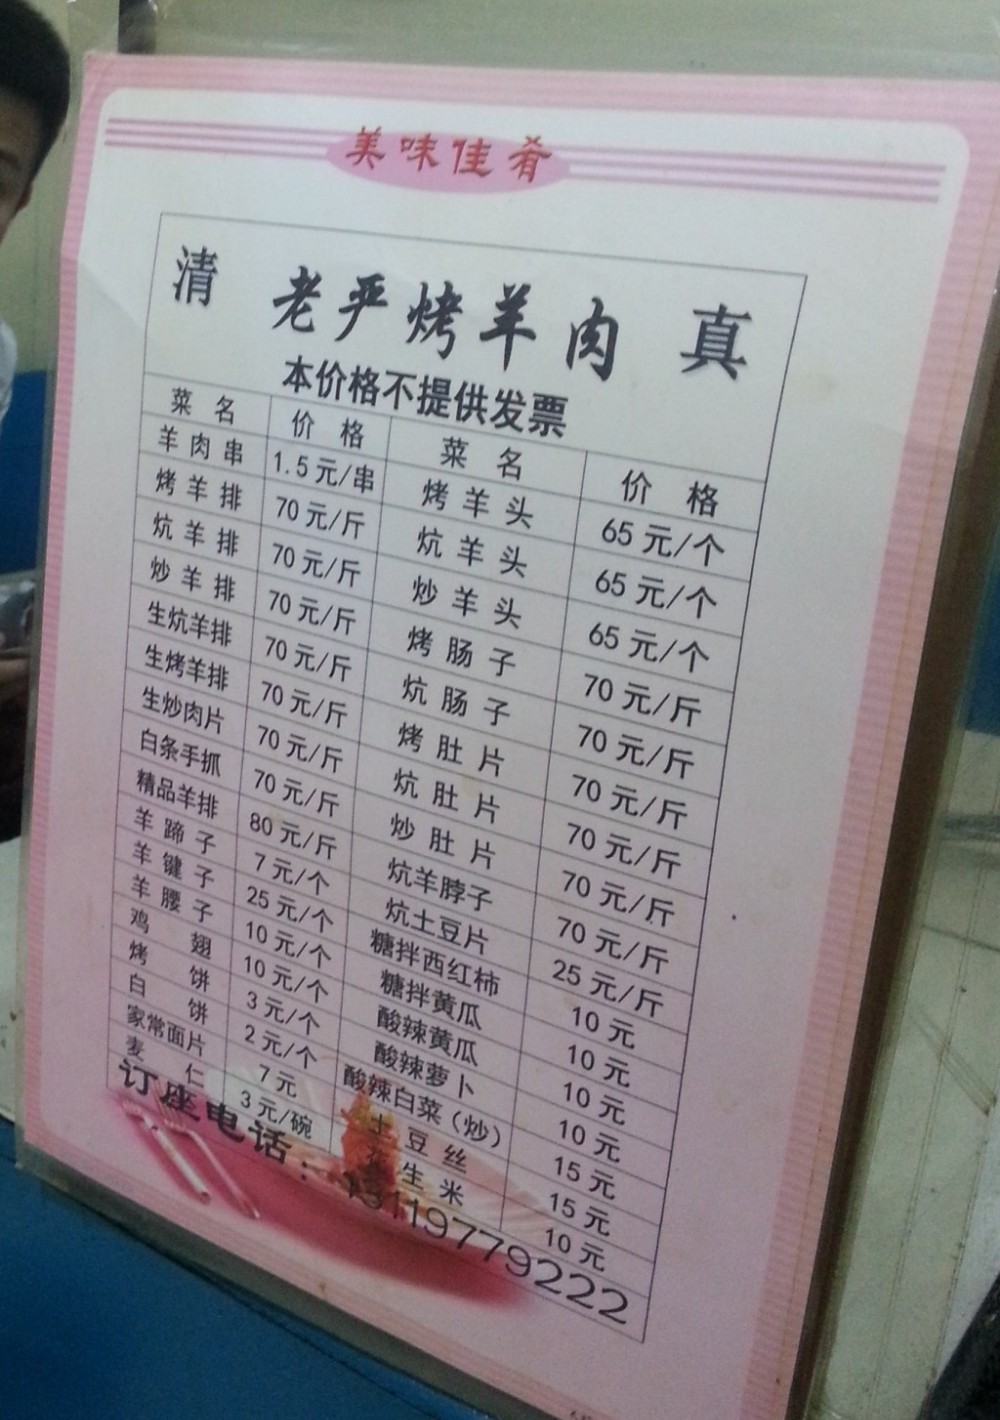 美味佳肴
清 老严烤羊肉 真
本价格不提供发票
菜名 价格 菜名 价格
羊肉串 1.5元/串 烤羊头 65元/个
烤羊排 70元/斤 炕羊头 65元/个
炕羊排 70元/斤 炒羊头 65元/个
炒羊排 70元/斤 烤肠子 70元/斤
生炕羊排 70元/斤 炕肠子 70元/斤
生烤羊排 70元/斤 烤肚片 70元/斤
生炒肉片 70元/斤 炕肚片 70元/斤
白条手抓 70元/斤 炒肚片 70元/斤
精品羊排 80元/斤 炕羊脖子 70元/斤
羊蹄子 7元/个 炕土豆片 25元/斤
羊键子 25元/个 糖拌西红柿 10元
羊腰子 10元/个 糖拌黄瓜 10元
鸡翅 10元/个 酸辣黄瓜 10元
烤饼 3元/个 酸辣萝卜 10元
白饼 2元/个 酸辣白菜(炒) 15元
家常面片 7元 土豆丝 15元
麦仁 3元/碗 花生米 10元
订座电话：13119779222